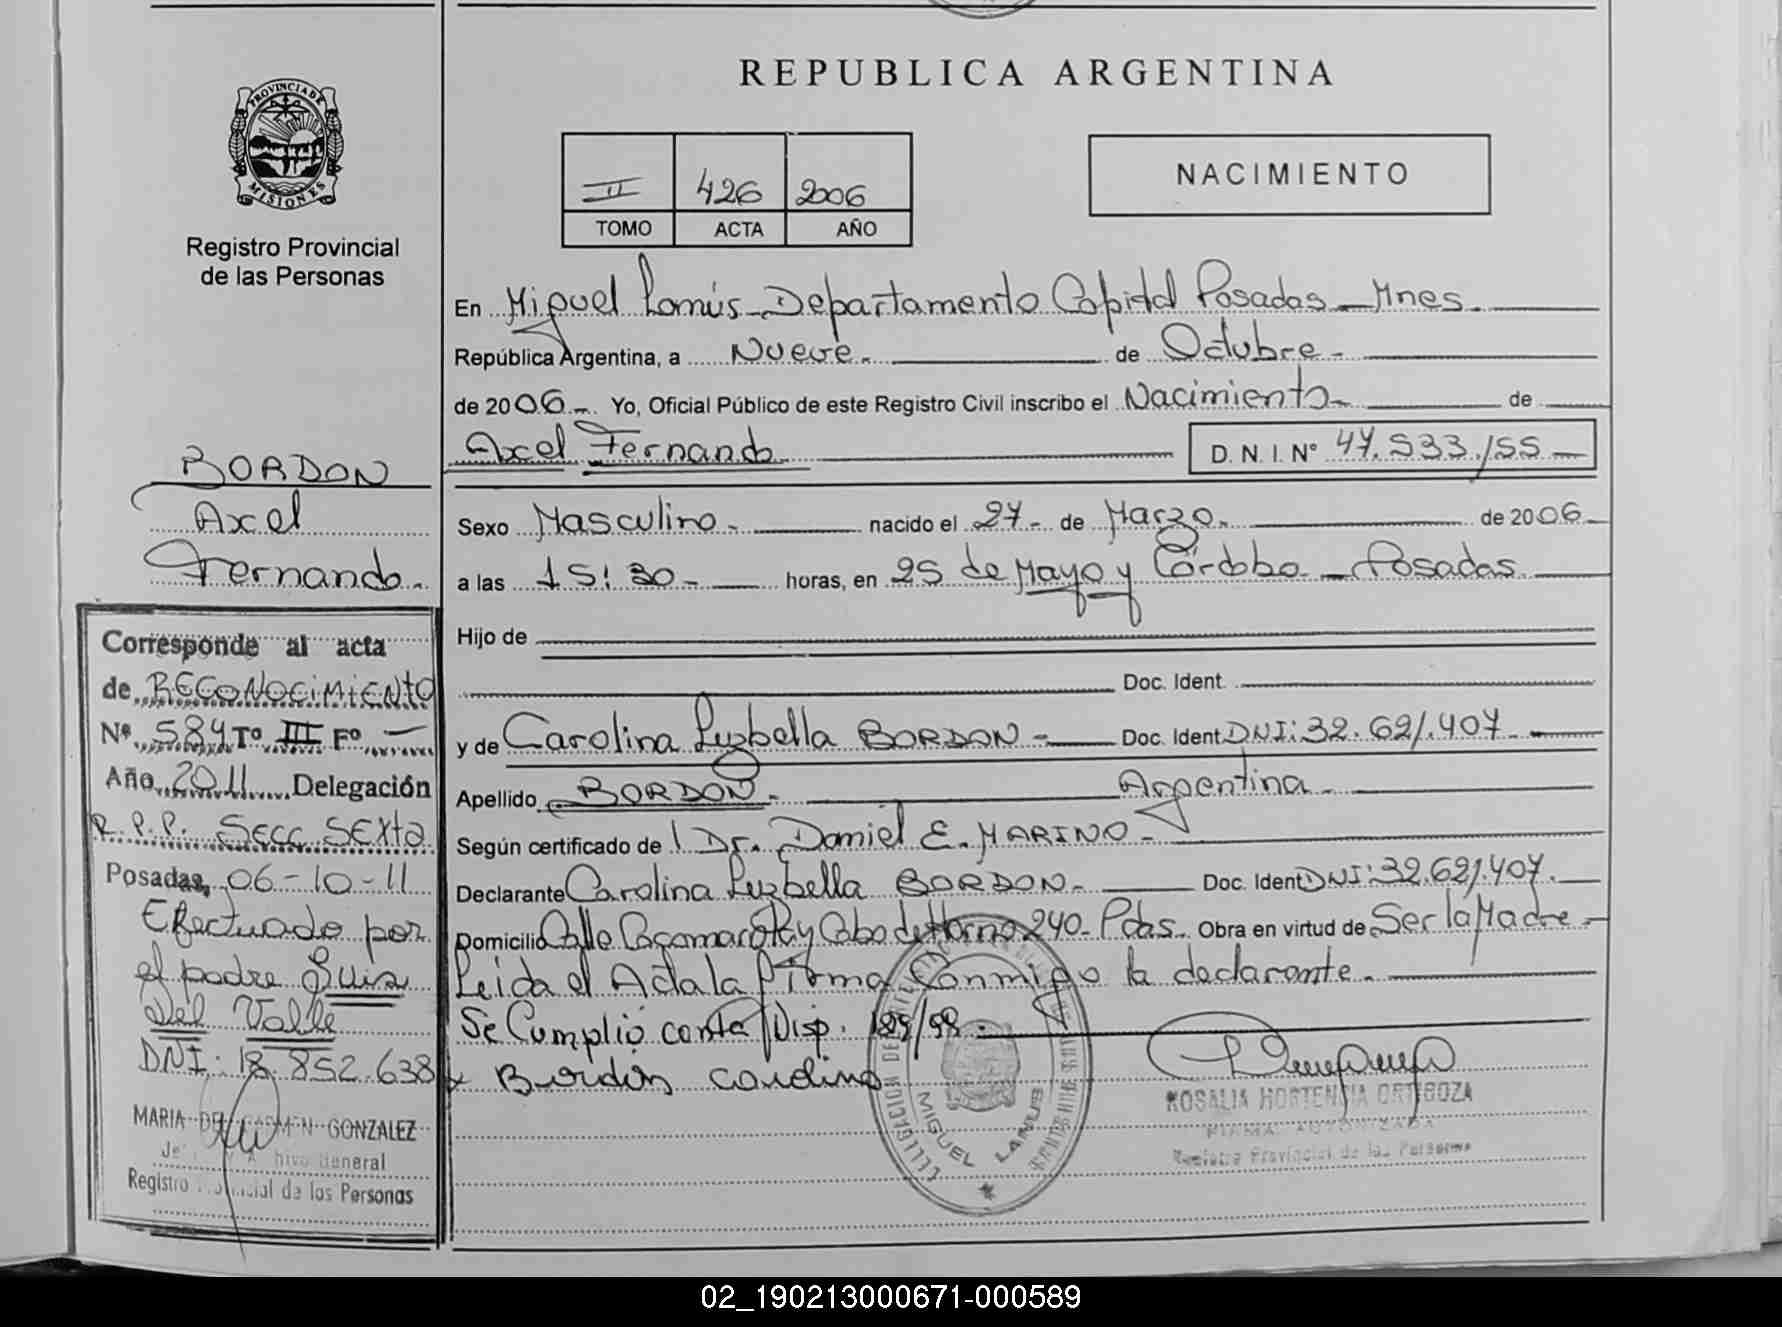 PROVINCIA DE
MISIONES
Registro Provincial
de las Personas
BORDON
Axel
Fernando.
Corresponde al acta
de RECONOCIMIENTO
Nº 584 Tº III Fº —
Año 2011 Delegación
R.P.P. Secc. SEXta
Posadas, 06-10-11
Efectuado por
el padre Luis
Del Valle
DNI: 18.852.638
MARIA DEL CARMEN GONZALEZ
General
Registro Provincial de las Personas
REPUBLICA ARGENTINA
II 426 2006
TOMO ACTA AÑO
NACIMIENTO
En Miguel Lanús - Departamento Capital Posadas - Mnes.
República Argentina, a Nueve. de Octubre.
de 2006. Yo, Oficial Público de este Registro Civil inscribo el Nacimiento de
Axel Fernando D.N.I. Nº 47.533.155
Sexo Masculino. nacido el 27 de Marzo. de 2006
a las 15:30 horas, en 25 de Mayo y Córdoba - Posadas
Hijo de
Doc. Ident.
y de Carolina Luzbella BORDON Doc. Ident. DNI: 32.621.407
Apellido BORDON. Argentina
Según certificado de Dr. Daniel E. MARINO
Declarante Carolina Luzbella BORDON Doc. Ident. DNI: 32.621.407.
Domicilio Calle y Cabo de Hornos 240 - Pdas. Obra en virtud de Ser la Madre
Leida el Acta la firma Conmigo la declarante.
Se Cumplió con la Disp. 189/98.
x Bordón Carolina
DELEGACION
MIGUEL LANUS
ROSALIA HORTENSIA ORTIGOZA
FIRMA AUTORIZADA
Registro Provincial de las Personas
02_190213000671-000589